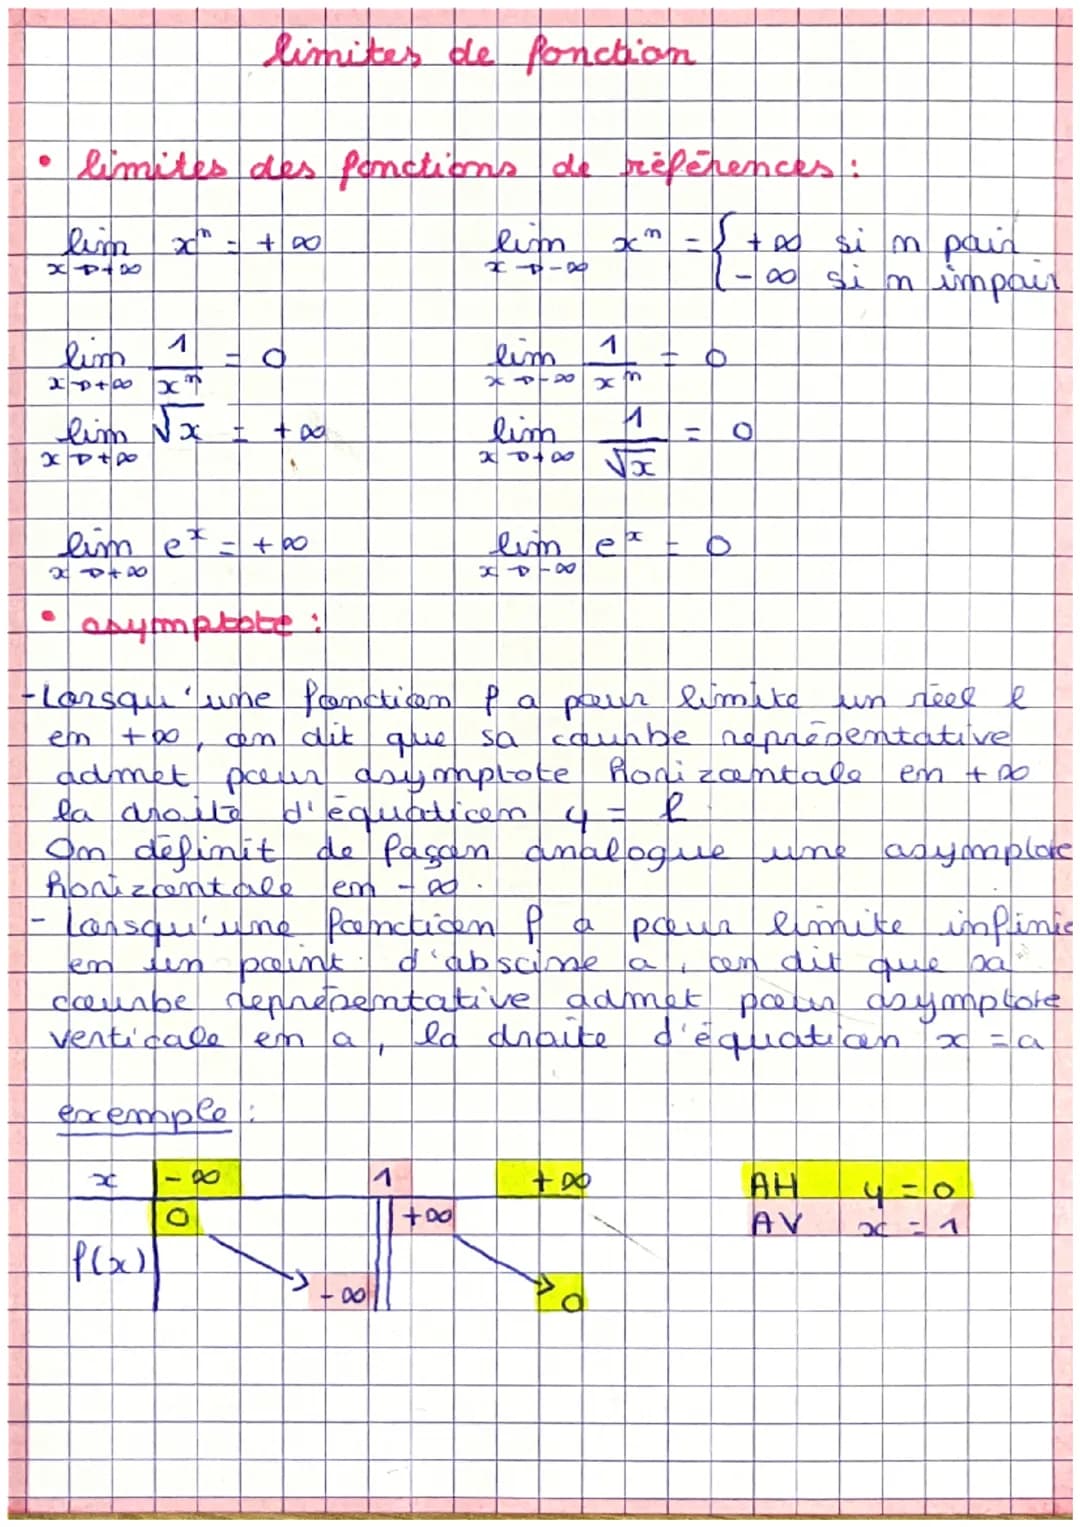 limites de fonction
• limites des fonctions de références :
lim x→+∞ xⁿ = +∞    lim x→-∞ xⁿ = { +∞ si n pair
- ∞ si n impair
lim x→+∞ 1/xⁿ = 0    lim x→-∞ 1/xⁿ = 0
lim x→+∞ √x = +∞    lim x→+∞ 1/√x = 0
lim x→+∞ eˣ = +∞    lim x→-∞ eˣ = 0
• asymptote :
- Lorsqu'une fonction f a pour limite un réel l
en +∞, on dit que sa courbe représentative
admet pour asymptote horizontale en +∞
la droite d'équation y = l
On définit de façon analogue une asymptote
horizontale en -∞.
- Lorsqu'une fonction f a pour limite infinie
en un point d'abscisse a, on dit que sa
courbe représentative admet pour asymptote
verticale en a, la droite d'équation x = a
exemple :
x    -∞    1    +∞    AH    y = 0
0    +∞    AV    x = 1
f(x)
-∞    0